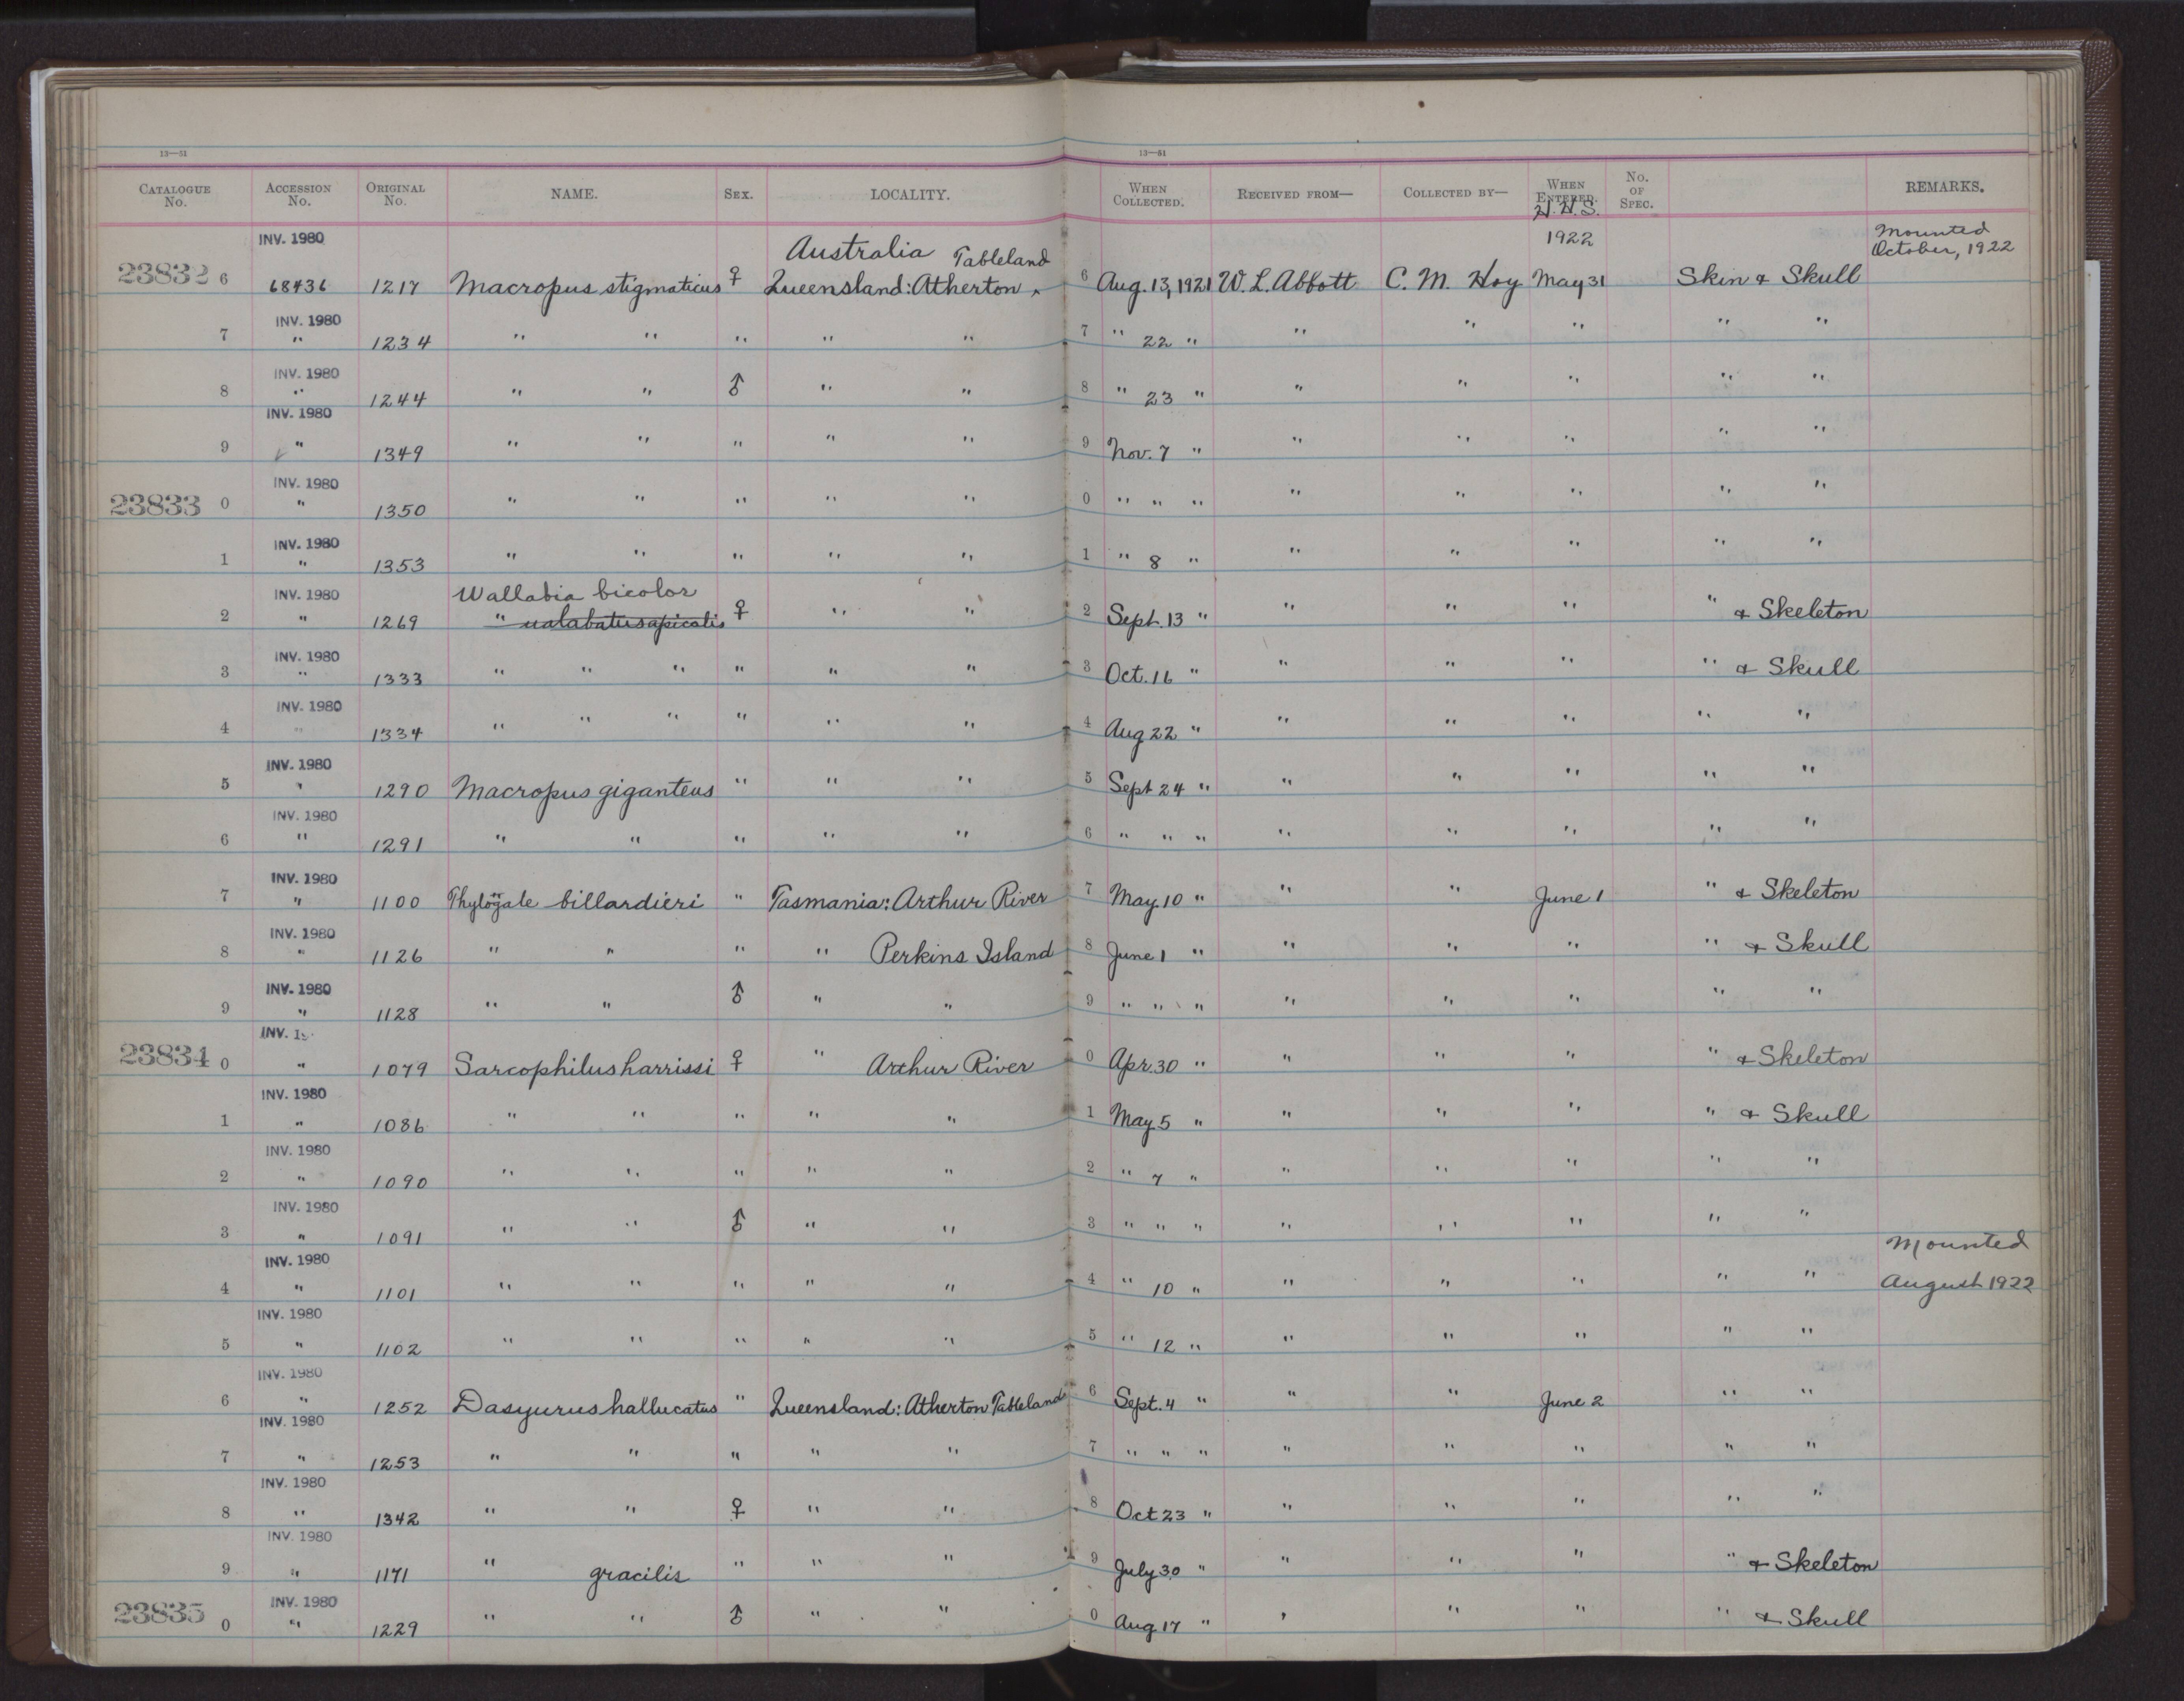 13—51 13—51
CATALOGUE No. ACCESSION No. ORIGINAL No. NAME. SEX. LOCALITY. WHEN COLLECTED. RECEIVED FROM— COLLECTED BY— WHEN ENTERED. No. OF SPEC. REMARKS.
H.H.S.
INV. 1980 Australia Tableland 1922 Mounted October, 1922
23832 6 68436 1217 Macropus stigmaticus ♀ Queensland: Atherton ^ 6 Aug. 13, 1921 W. L. Abbott C. M. Hoy May 31 Skin & Skull
INV. 1980
7 " 1234 " " " " " 7 " 22 " " " " " "
INV. 1980
8 " 1244 " " ♂ " " 8 " 23 " " " " " "
INV. 1980
9 " 1349 " " " " " 9 Nov. 7 " " " " " "
INV. 1980
23833 0 " 1350 " " " " " 0 " " " " " " " "
INV. 1980
1 " 1353 " " " " " 1 " 8 " " " " " "
INV. 1980 Wallabia bicolor
2 " 1269 " ualabatus apicalis ♀ " " 2 Sept. 13 " " " " " & Skeleton
INV. 1980
3 " 1333 " " " " " " 3 Oct. 16 " " " " " & Skull
INV. 1980
4 " 1334 " " " " " " 4 Aug 22 " " " " " "
INV. 1980
5 " 1290 Macropus giganteus " " " 5 Sept 24 " " " " " "
INV. 1980
6 " 1291 " " " " " 6 " " " " " " " "
INV. 1980
7 " 1100 Thylogale billardieri " Tasmania: Arthur River 7 May 10 " " " June 1 " & Skeleton
INV. 1980
8 " 1126 " " " " Perkins Island 8 June 1 " " " " " & Skull
INV. 1980
9 " 1128 " " ♂ " " 9 " " " " " " " "
INV. 19
23834 0 " 1079 Sarcophilus harrissi ♀ " Arthur River 0 Apr. 30 " " " " " & Skeleton
INV. 1980
1 " 1086 " " " " " 1 May 5 " " " " " & Skull
INV. 1980
2 " 1090 " " " " " 2 " 7 " " " " " "
INV. 1980
3 " 1091 " " ♂ " " 3 " " " " " " " "
INV. 1980 Mounted
4 " 1101 " " " " " 4 " 10 " " " " " " August 1922
INV. 1980
5 " 1102 " " " " " 5 " 12 " " " " " "
INV. 1980
6 " 1252 Dasyurus hallucatus " Queensland: Atherton Tableland 6 Sept. 4 " " " June 2 " "
INV. 1980
7 " 1253 " " " " " 7 " " " " " " " "
INV. 1980
8 " 1342 " " ♀ " " 8 Oct 23 " " " " " "
INV. 1980
9 " 1171 " gracilis " " " 9 July 30 " " " " " & Skeleton
INV. 1980
23835 0 " 1229 " " ♂ " " 0 Aug 17 " " " " " & Skull